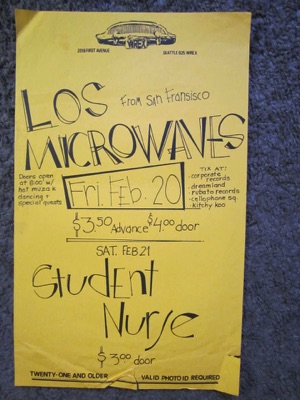 WREX
2018 FIRST AVENUE SEATTLE 625-WREX
LOS
From San Fransisco
MICROWAVES
Doors open
at 8:00 w/
hot muzak
dancing +
special guests
Fri. Feb. 20
TIX AT:
- corporate
records
- dreamland
- rubato records
- cellophane sq.
- kitchy koo
$3.50 Advance $4.00 door
SAT. FEB 21
Student
Nurse
$3.00 door
TWENTY-ONE AND OLDER VALID PHOTO ID REQUIRED